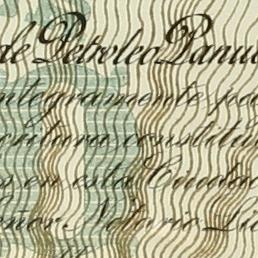 de Petroleo Panu
ntegramente pa
critura constitu
s en esta Ciuda
enor Notario Li